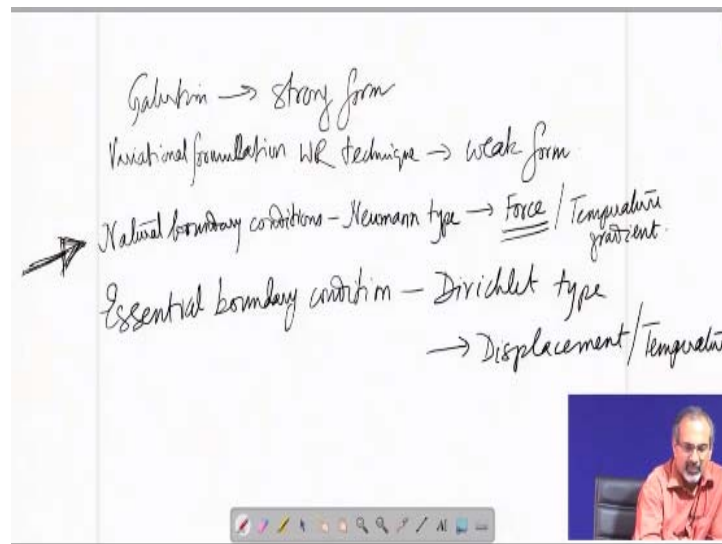 Galerkin → strong form
Variational formulation WR technique → weak form.
Natural boundary conditions - Neumann type → Force / Temperature gradient.
Essential boundary condition - Dirichlet type
→ Displacement / Temperatu
AI